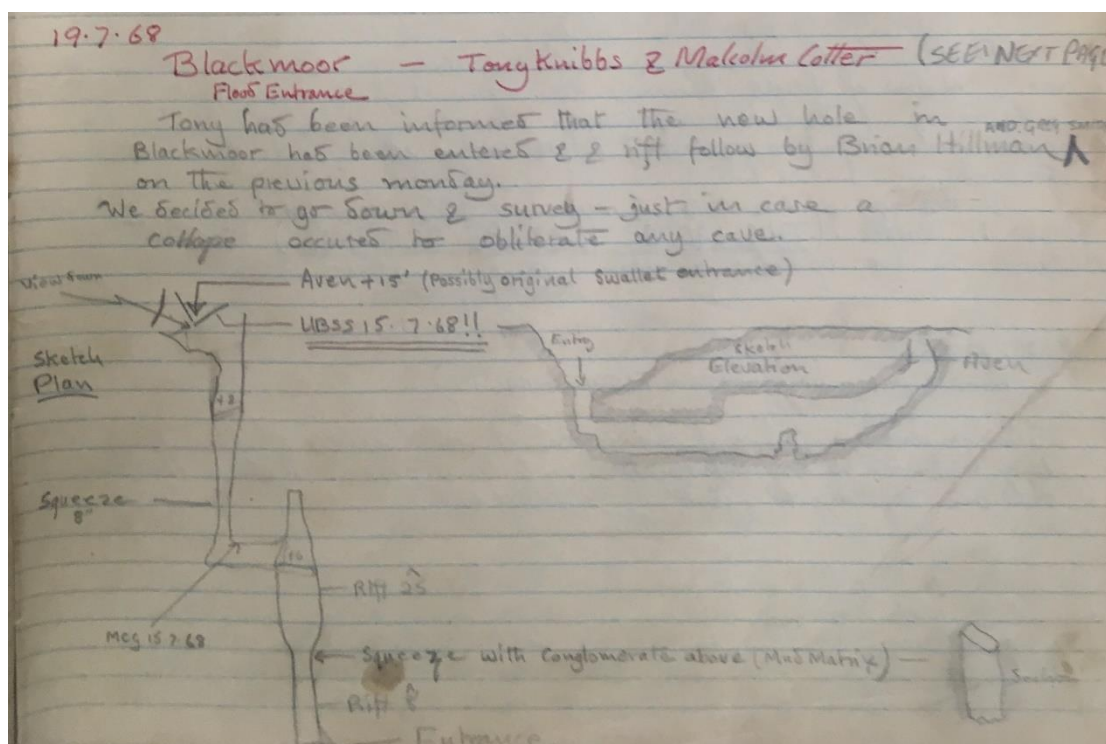 19.7.68
Blackmoor — Tony Knibbs & Malcolm Cotter (SEE NEXT PAGE
Flood Entrance
Tony had been informed that the new hole in
AND. GREY
Blackmoor had been entered & & rift follow by Brian Hillman
on the previous monday.
We decided to go down & survey – just in case a
collape occured to obliterate any cave.
View down
Aven +15' (Possibly original Swallet entrance)
UBSS 15.7.68!!
Entry
Sketch
Elevation
Aven
Sketch
Plan
+8
Squeeze
8"
+6
Rift 25
MCG 15 7.68
Squeeze with Conglomerate above (Mud Matrix) —
Rift 8
Entrance